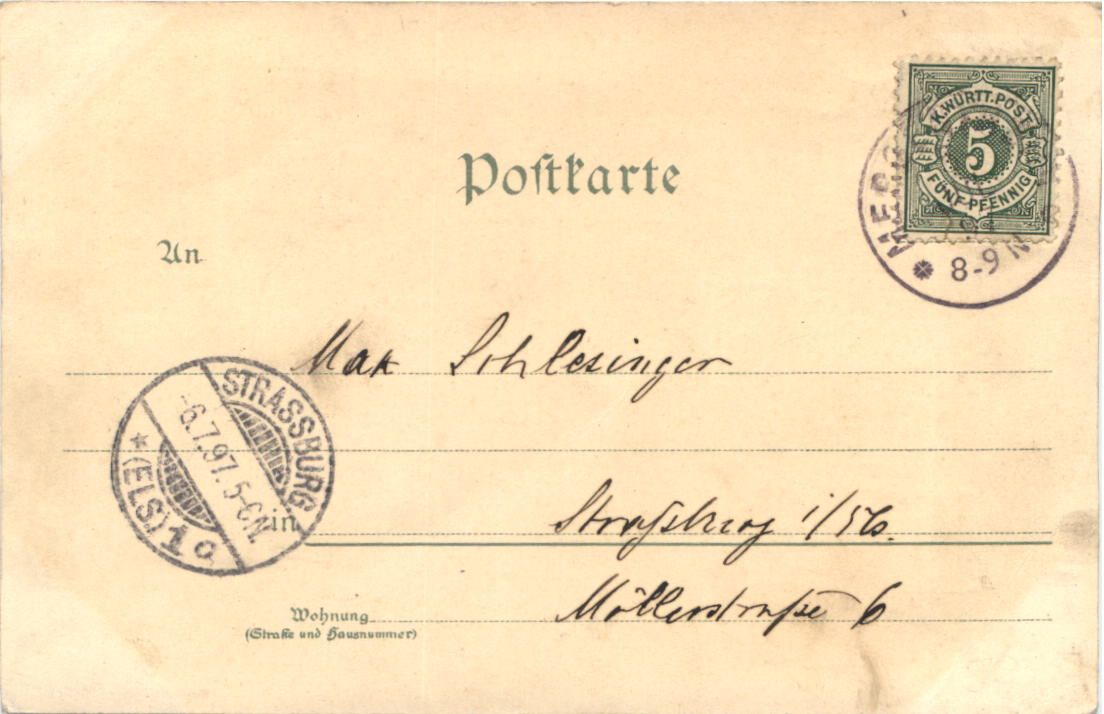 K.WÜRTT.POST
5
FÜNF-PFENNIG
8-9 N
Postkarte
An
Max Schlesinger
STRASSBURG
-6.7.97. 5-6N
* (ELS) 1 a
in Straßburg i/Els.
Wohnung
(Straße und Hausnummer)
Möllerstraße 6